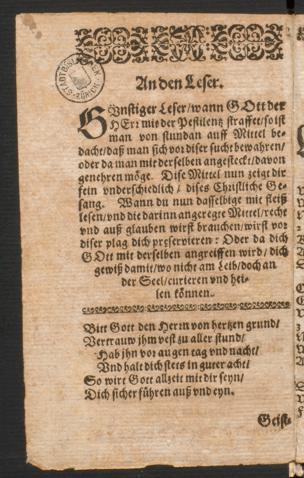 STADTBIBLIOTHEK ZÜRICH
An den Leser.
GÜnstiger Leser/wann GOtt der
HErr mit der Pestilentz straffet/so ist
man von stundan auff Mittel be-
dacht/daß man sich vor diser sucht bewahren/
oder da man mit derselben angesteckt/davon
genehren möge. Dise Mittel nun zeigt dir
fein vnderschiedlich / dises Christliche Ge-
sang. Wann du nun dasselbige mit fleiß
lesen/vnd die darinn angeregte Mittel/recht
vnd auß glauben wirst brauchen/wirst vor
diser plag dich præservieren: Oder da dich
GOtt mit derselben angreiffen wird/dich
gewiß damit/wo nicht am Leib/doch an
der Seel/curieren vnd hei-
len können.
Bitt Gott den Herrn von hertzen grund/
Vertrauw jhm vest zu aller stund/
Hab jhn vor augen tag vnd nacht/
Vnd halt dich stets in guter acht/
So wirt Gott allzeit mit dir seyn/
Dich sicher führen auß vnd eyn.
Geist-